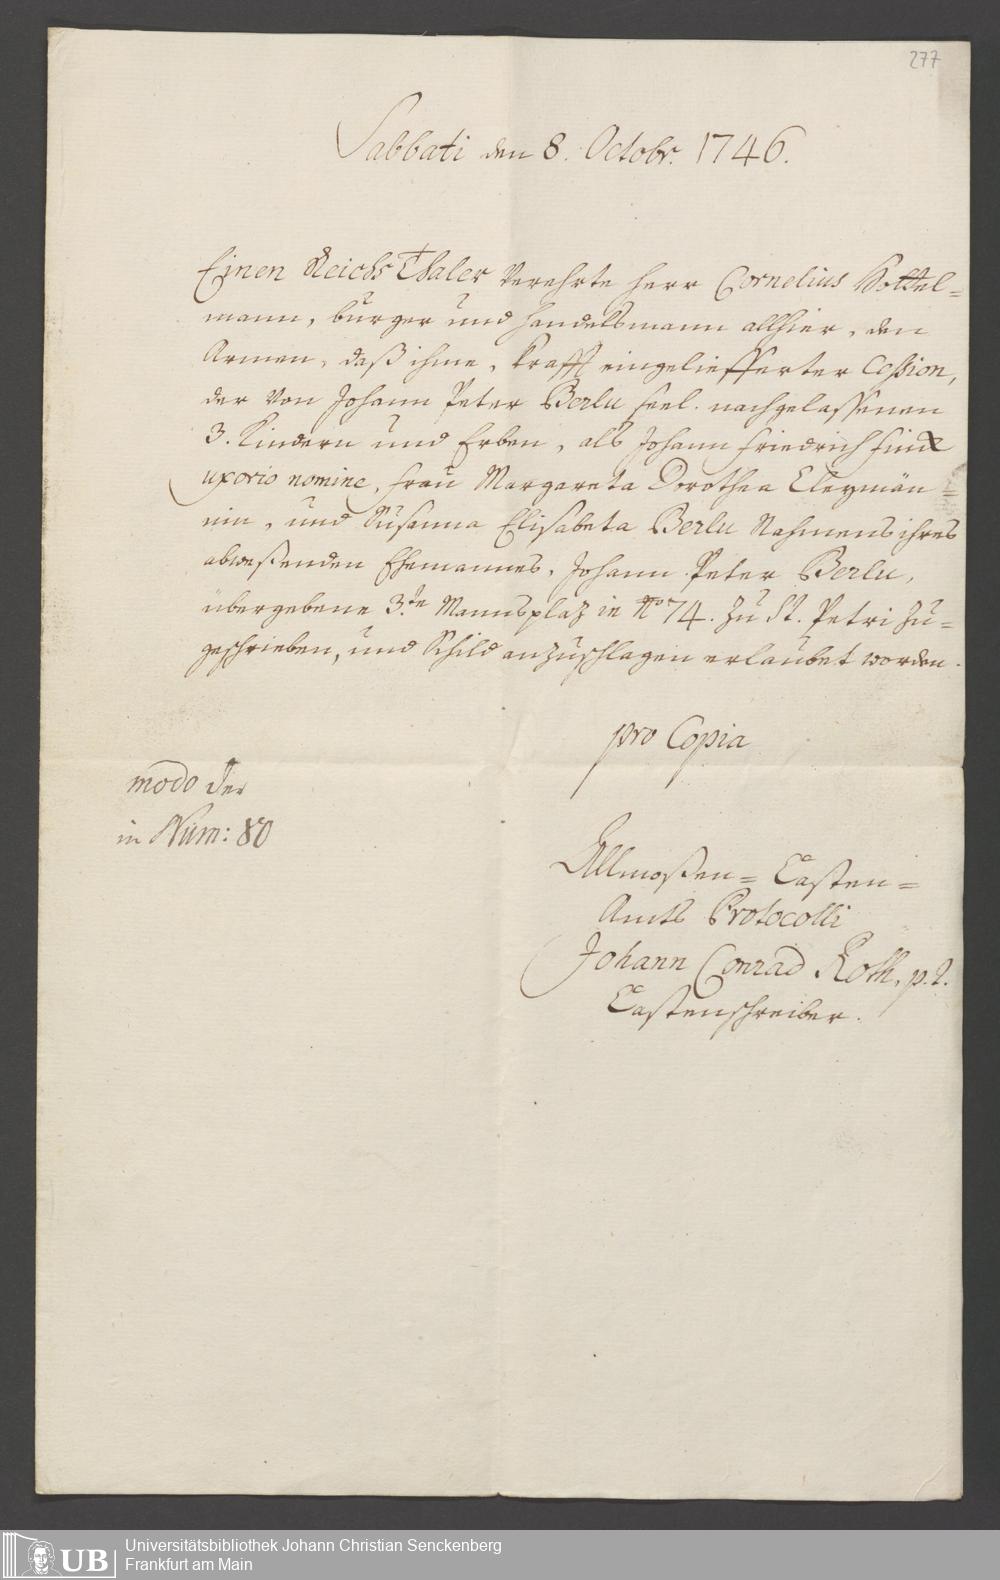 277
Sabbati den 8. Octobr. 1746.
Einen Reichs Thaler verehrte Herr Cornelius Hottel=
mann, burger und Handelsmann allhier, den
Armen, daß ihme, krafft eingeliefferter Cession,
der von Johann Peter Berlu seel. nachgelassenen
3. Kindern und Erben, als Johann Friedrich Finck
uxorio nomine, Frau Margareta Dorothea Cleymän=
nin, und Susanna Elisabeta Berlu Nahmens ihres
abweßenden Ehemannes, Johann Peter Berlu,
übergebene 3.te Mannsplaz in No 74. zu St. Petri zu=
geschrieben, und Schild anzuschlagen erlaubet worden.
pro Copia
modo der
in Num: 80
Allmoßen= Casten=
Amts Protocolli
Johann Conrad Roth, p. t.
Castenschreiber.
UB
Universitätsbibliothek Johann Christian Senckenberg
Frankfurt am Main